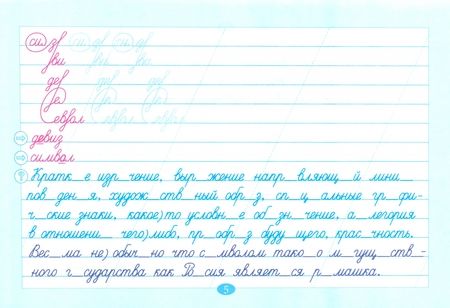 си зв си зв си зв
зви зви зви
дев дев дев
девиз
символ
Кратк_е изр_чение, выр_жение напр_вляющ_й мини
пов_ден_я, худож_ств_ный обр_з, сп_ц_альные гр_фи-
ч_ские знаки, какое)то условн_е об_зн_чение, а_легория
в отношени_ чего)либо, пр_обр_з буду_щего, крас_чность.
Вес_ма не) обыч_но что с_мволам тако_о м_гущ_ств_-
ного г_сударства как В_сия являет_ся р_машка.
5